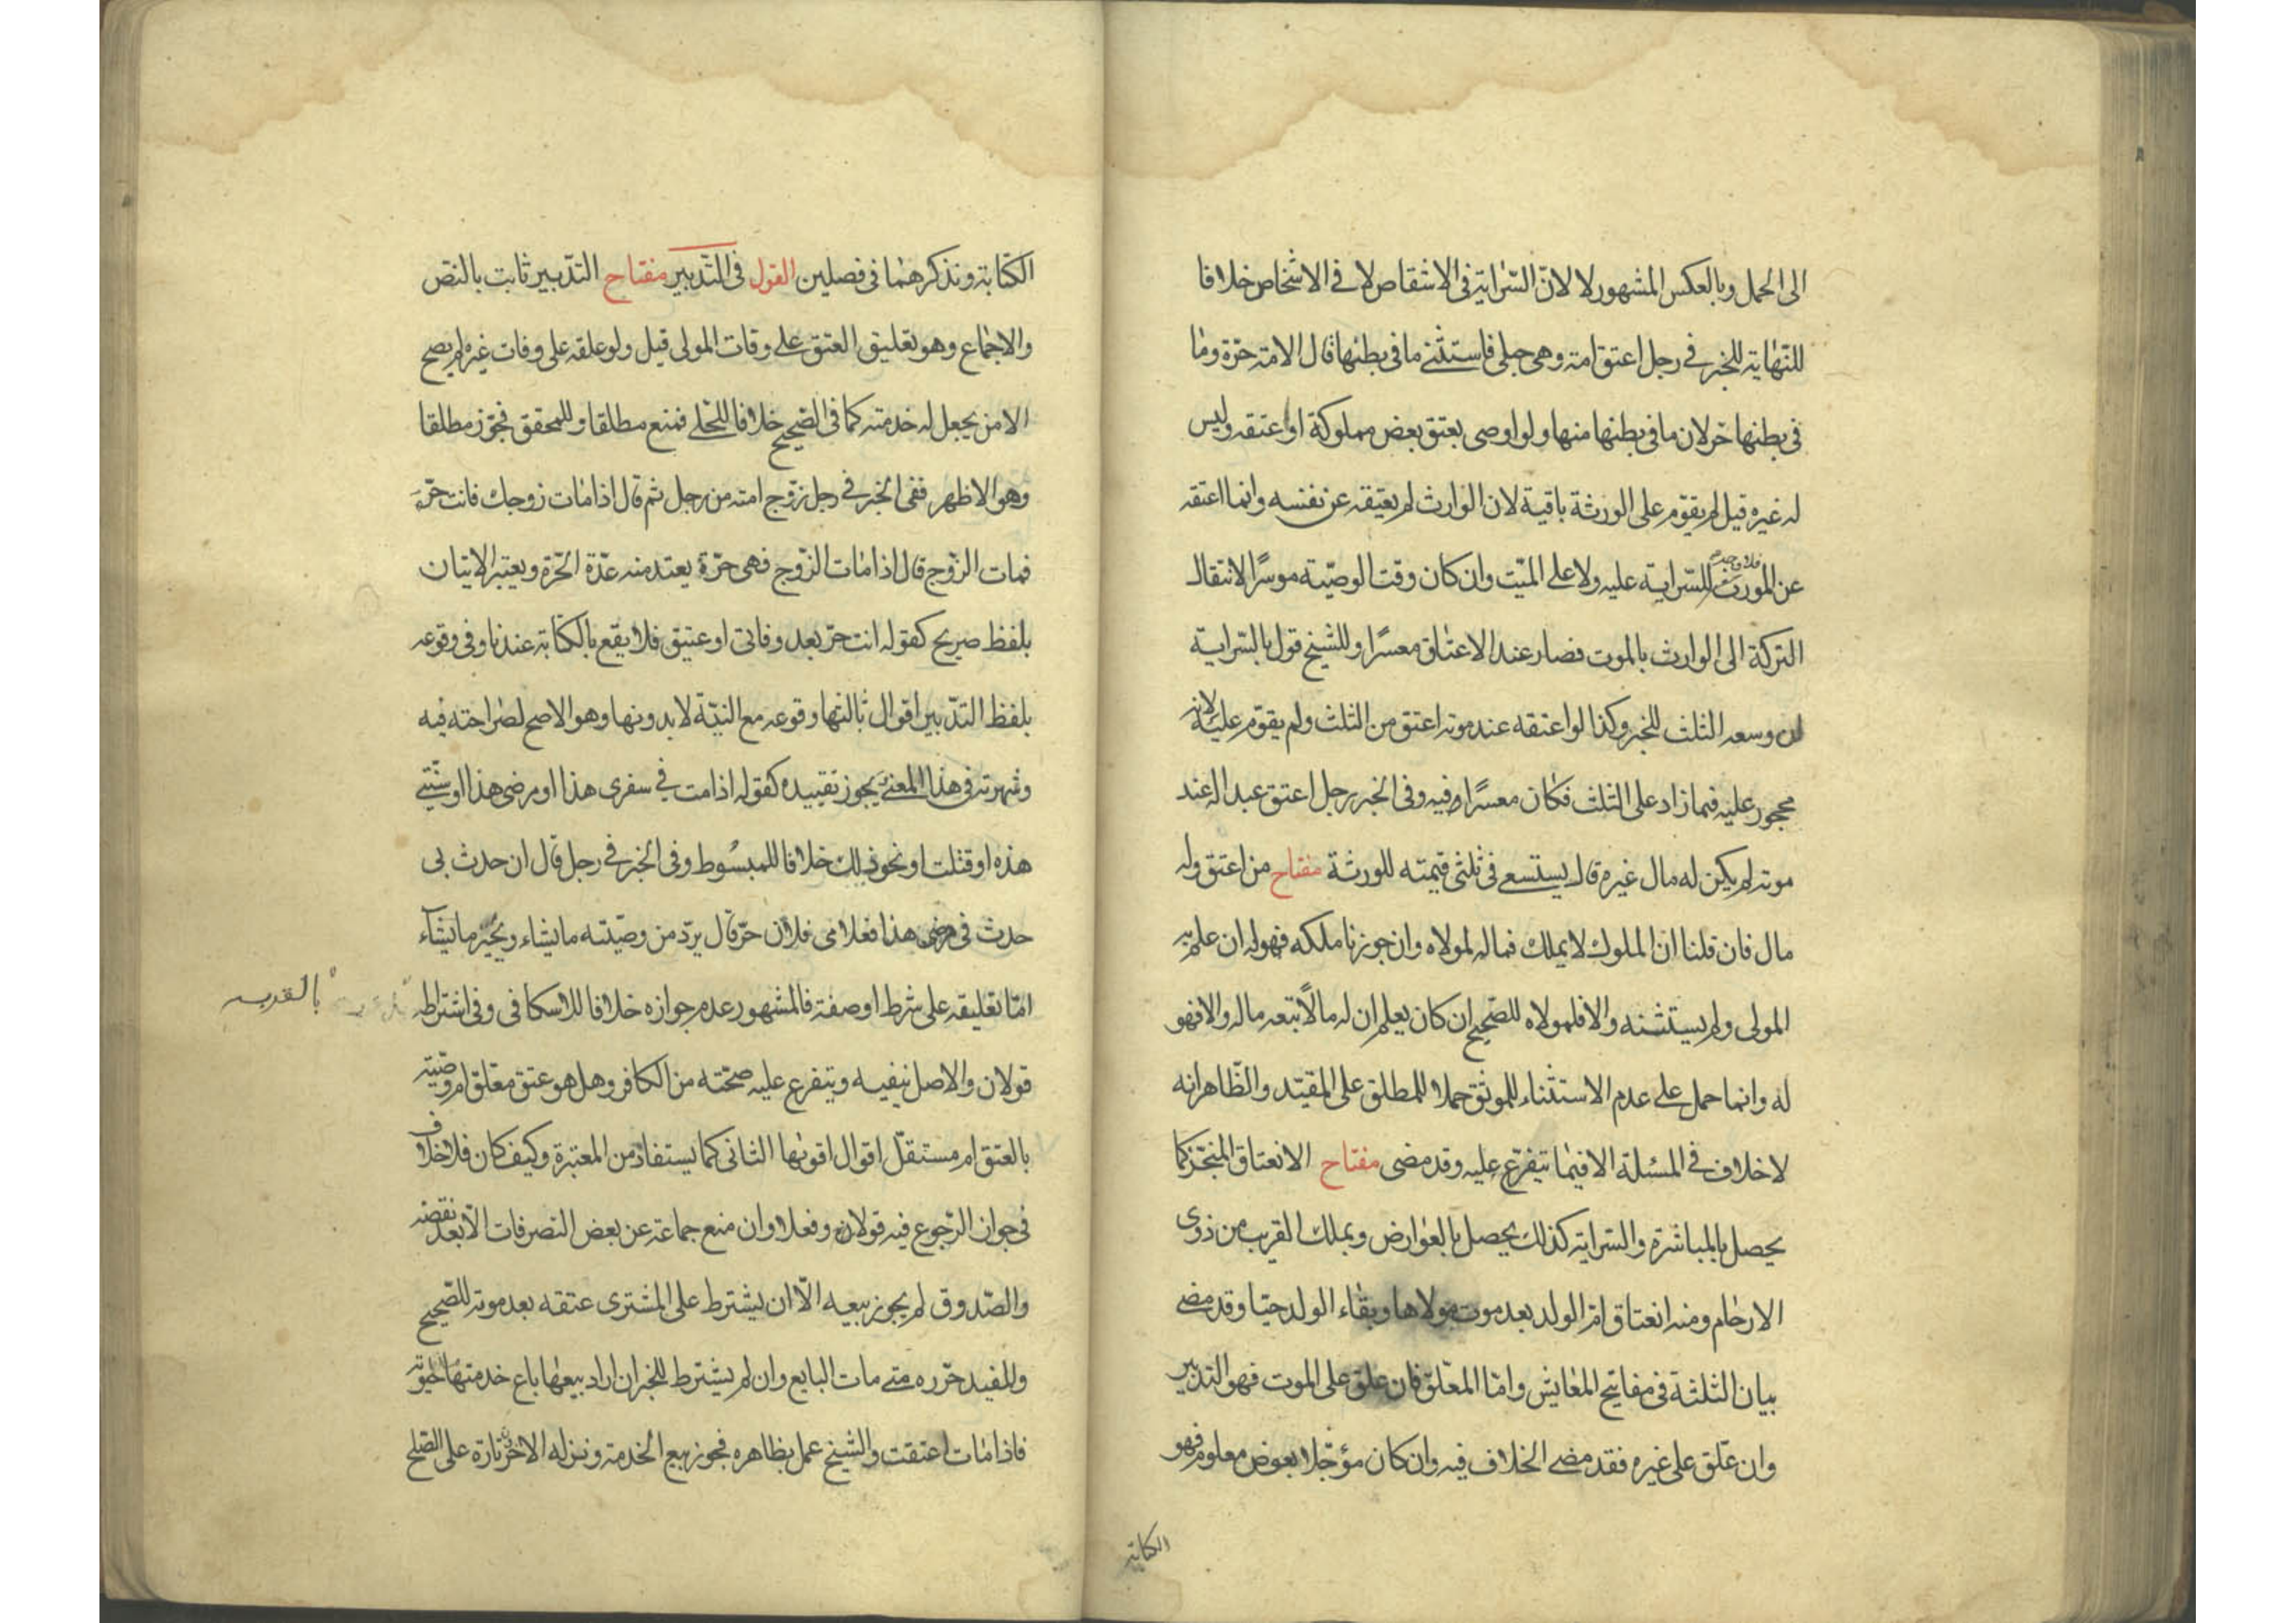 الى الحمل وبالعكس المشهور لا لانّ السّراية فى الاشقاص لا فى الاشخاص خلافا
للنّهاية للخبر فى رجل اعتق امته وهى حبلى فاستثنى ما فى بطنها قال الامة حرّة وما
فى بطنها حرّ لان ما فى بطنها منها ولو اوصى بعتق بعض مملوكة او اعتقه وليس
له غيره قيل لم يقوّم على الورثة باقية لان الوارث لم يعتقه عن نفسه وانما اعتقه
عن المورث فلا وجه للسّراية عليه ولا على الميّت وان كان وقت الوصيّة موسرًا لانتقال
التركة الى الوارث بالموت فصار عند الاعتاق معسرًا وللشيخ قول بالسّراية
ان وسعه الثلث للخبر وكذا لو اعتقه عند موته اعتق من الثلث ولم يقوّم عليه لانه
محجور عليه فيما زاد على الثلث فكان معسرًا فيه وفى الخبر رجل اعتق عبدا له عند
موته لم يكن له مال غيره قال يستسعى فى ثلثى قيمته للورثة مفتاح من اعتق وله
مال فان قلنا انّ المملوك لا يملك فماله لمولاه وان جوزنا ملكه فهو له ان علم به
المولى ولم يستثنه والا فلمولاه للصّحيح ان كان يعلم ان له مالًا تبعه ماله والا فهو
له وانما حمل على عدم الاستثناء للموثق حملا للمطلق على المقيّد والظّاهر انه
لا خلاف فى المسئلة الا فيما يتفرّع عليه وقد مضى مفتاح الانعتاق المنجّز كما
يحصل بالمباشرة والسراية كذلك يحصل بالعوارض وبملك القريب من ذوى
الارحام ومنه انعتاق امّ الولد بعد موت مولاها وبقاء الولد حيّا وقد مضى
بيان الثلثة فى مفاتيح المعايش وامّا المعلّق فان علق على الموت فهو التدبير
وان علّق على غيره فقد مضى الخلاف فيه وان كان مؤجّلا بعوض معلوم فهو
الكتابة
الكتابة ونذكرهما فى فصلين القول فى التّدبير مفتاح التدّبير ثابت بالنصّ
والاجماع وهو تعليق العتق على وفات المولى قيل ولو علقه على وفات غيره لم يصح
الا من يجعل له خدمته كما فى الصّحيح خلافا للحلى فمنع مطلقا وللمحقق فجوّز مطلقا
وهو الاظهر ففى الخبر فى رجل زوّج امته من رجل ثم قال اذا مات زوجك فانت حرّة
فمات الزّوج قال اذا مات الزّوج فهى حرّة يعتد منه عدّة الحرّة ويعتبر الاتيان
بلفظ صريح كقوله انت حرّ بعد وفاتى او عتيق فلا يقع بالكتابة عندنا وفى وقوعه
بلفظ التدّبير اقوال ثالثها وقوعه مع النيّة لا بدونها وهو الاصح لصراحته فيه
وشهرته فى هذا المعنى يجوز تقييده كقوله اذا مت فى سفرى هذا او مرضى هذا او سنتى
هذه او قتلت او نحو ذلك خلافا للمبسوط وفى الخبر فى رجل قال ان حدث بى
حدث فى مرضى هذا فغلامى فلان حرّ قال يردّ من وصيّته ما يشاء ويجيز ما يشاء
امّا تعليقه على شرط او صفة فالمشهور عدم جوازه خلافا للاسكافى وفى اشتراطه
قولان والاصل ينفيه ويتفرع عليه صحّته من الكافر وهل هو عتق معلّق ام وصيّته
بالعتق ام مستقلّ اقوال اقويها الثانى كما يستفاد من المعتبرة وكيف كان فلا خلاف
فى جواز الرّجوع فيه قولا وفعلا وان منع جماعة عن بعض التصرفات الّا بعد نقضه
والصّدوق لم يجوز بيعه الّا ان يشترط على المشترى عتقه بعد موته للصّحيح
وللمفيد حرّره متى مات البايع وان لم يشترط للخبر ان اراد بيعها باع خدمتها حيوته
فاذا مات اعتقت والشيخ عمل بظاهره فجوز بيع الخدمة ونزله الاخرّ تارة على الصلح